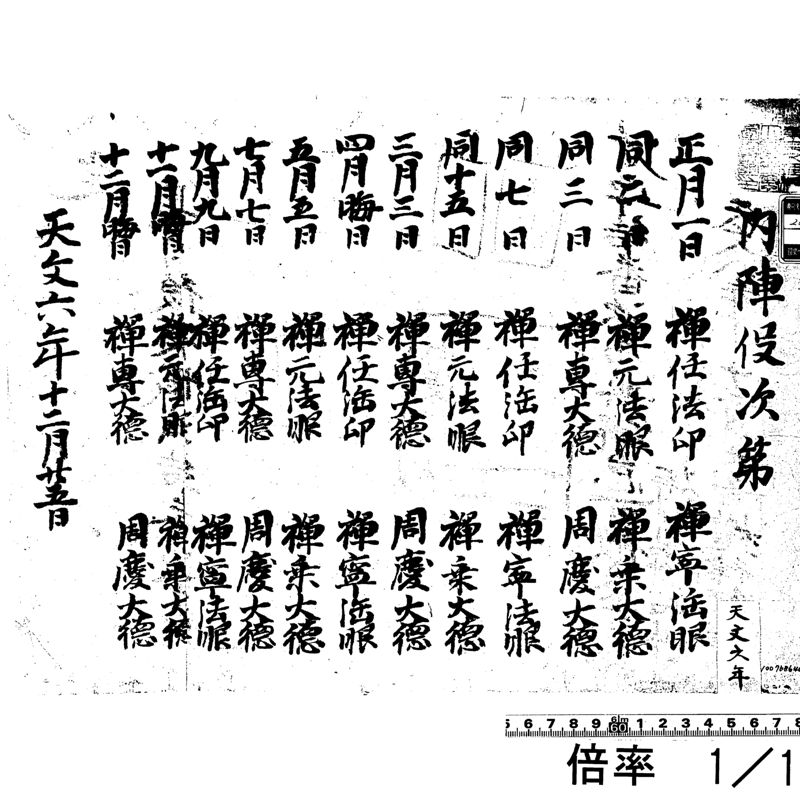 内陣役次第
正月一日 禅任法印 禅寧法眼
同二日 禅元法眼 禅乗大徳
同三日 禅専大徳 周慶大徳
同七日 禅任法印 禅寧法眼
同十五日 禅元法眼 禅乗大徳
三月三日 禅専大徳 周慶大徳
四月晦日 禅任法印 禅寧法眼
五月五日 禅元法眼 禅乗大徳
七月七日 禅専大徳 周慶大徳
九月九日 禅任法印 禅寧法眼
十一月晦日 禅元法眼 禅乗大徳
十二月晦日 禅専大徳 周慶大徳
天文六年十二月廿五日
天文六年
5 6 7 8 9 60 1 2 3 4 5 6 7 8
倍率 1/1